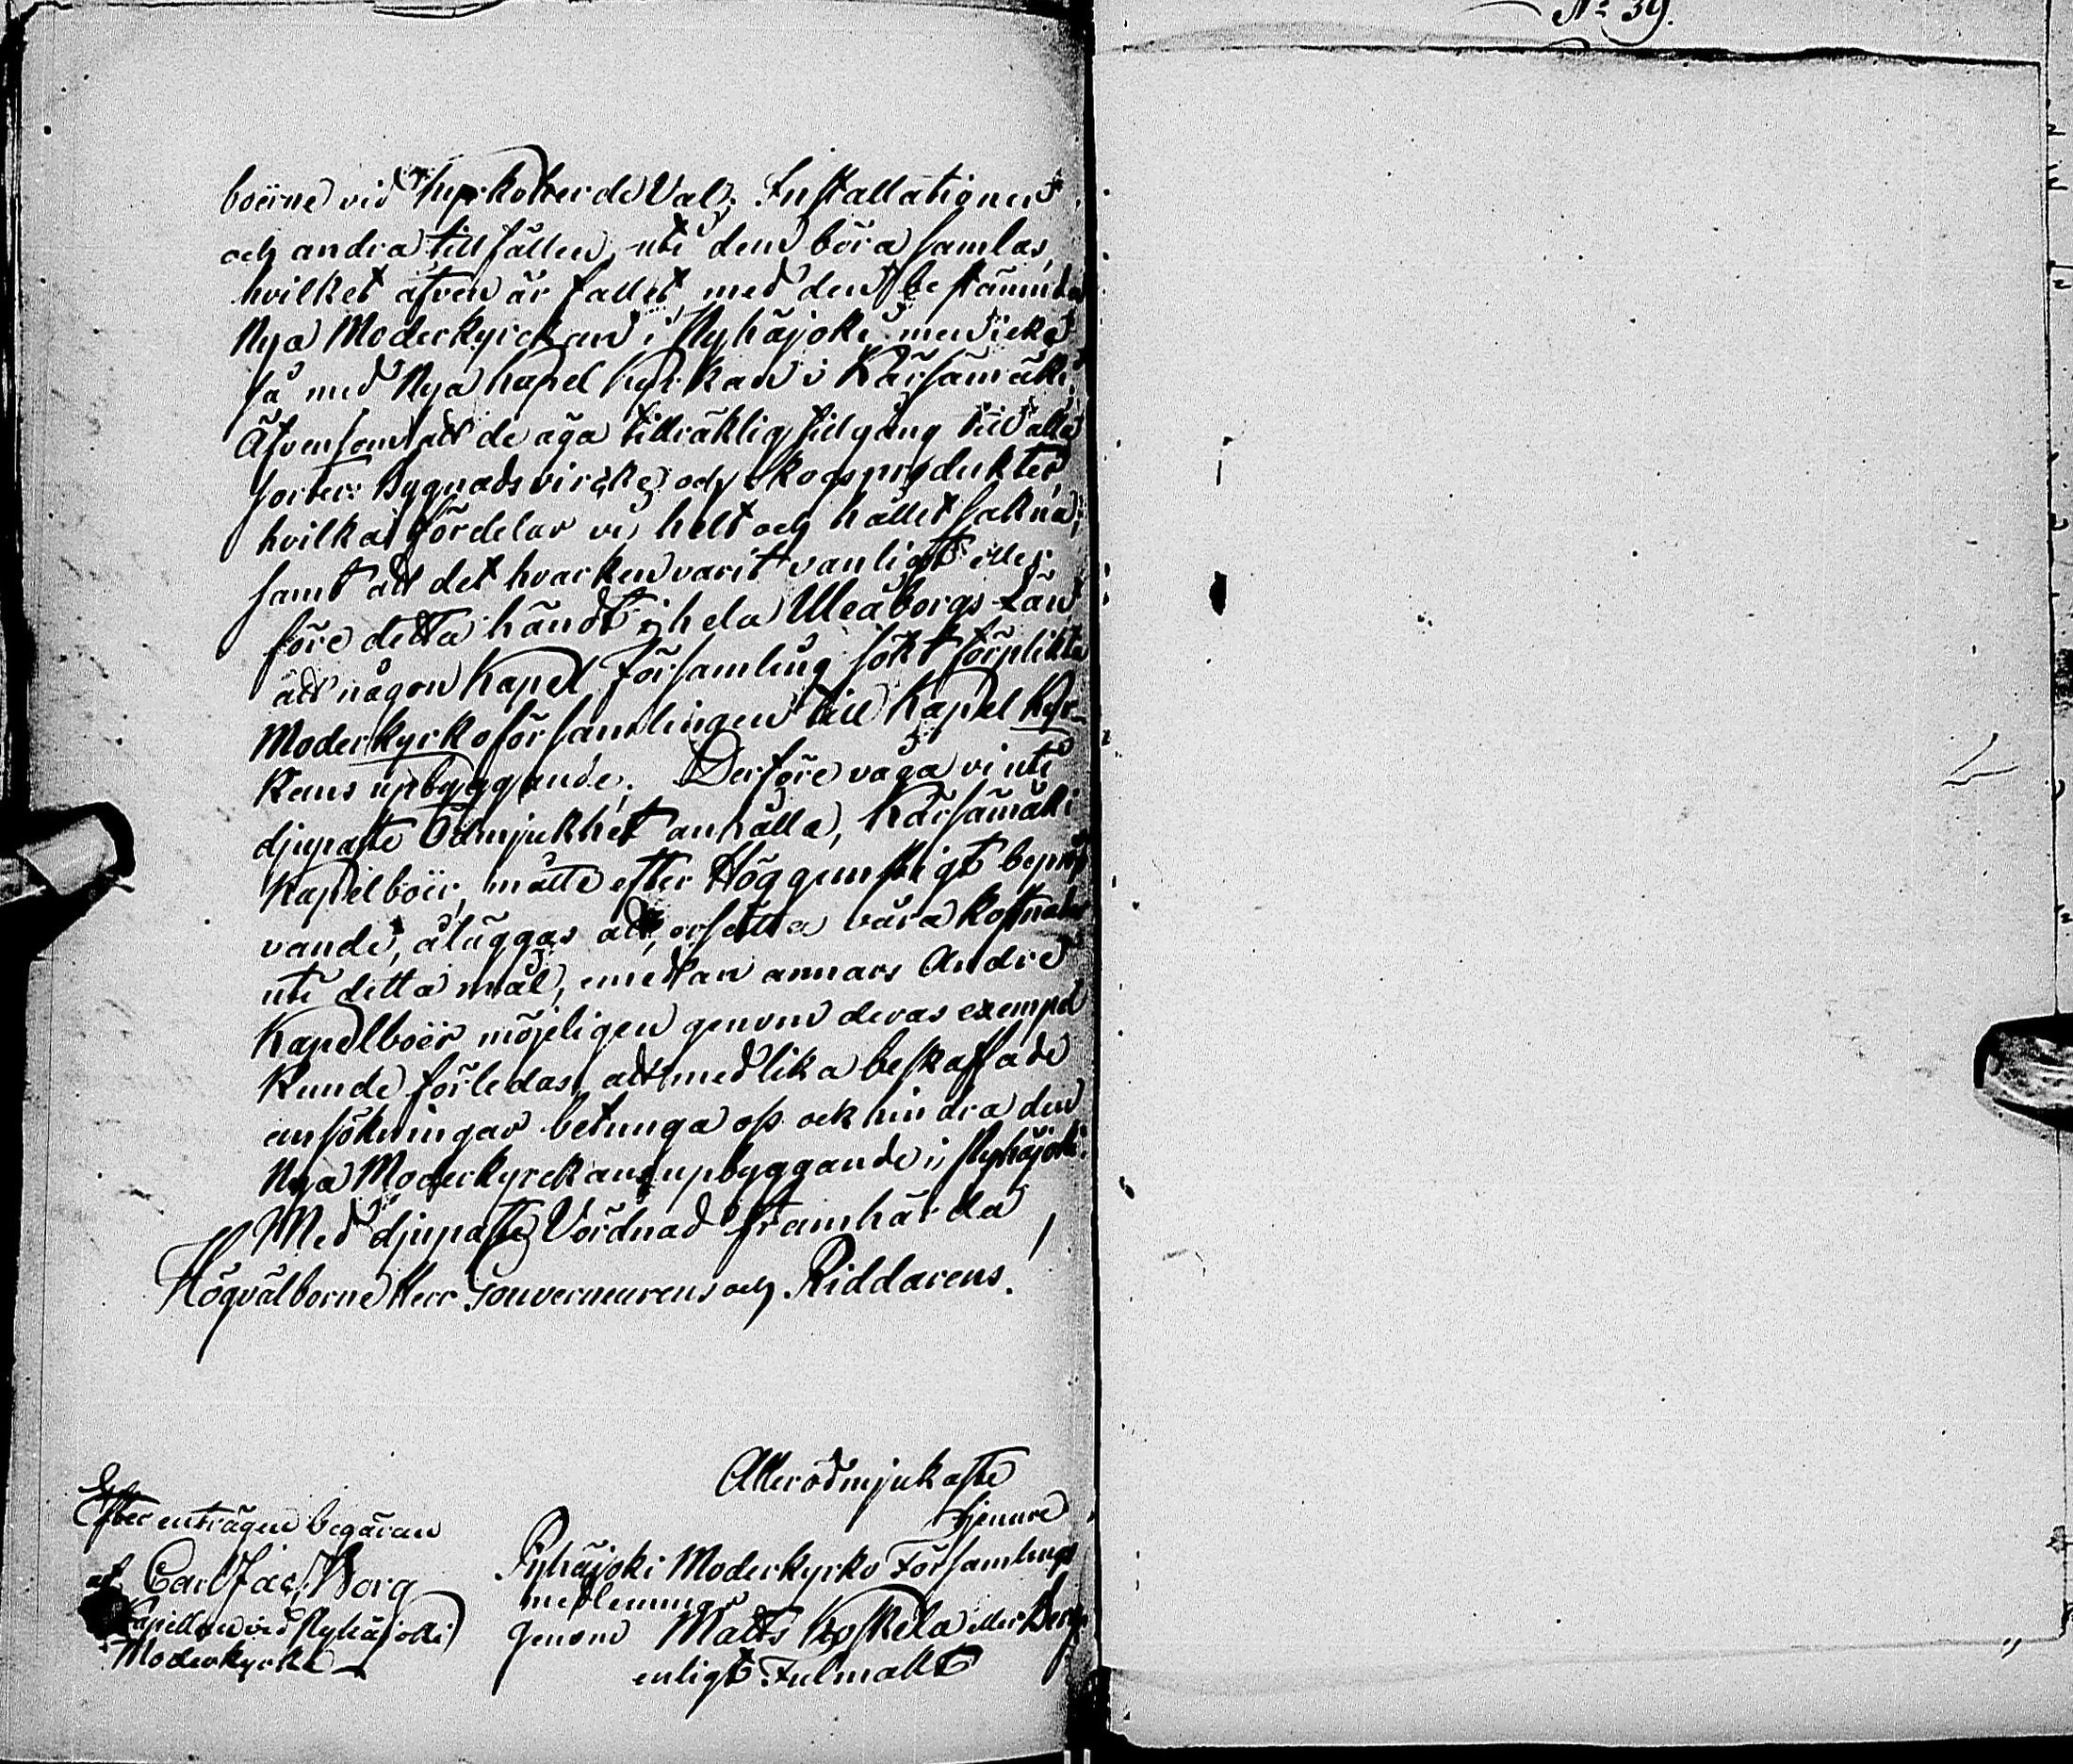 boerne vid Kyrkoherde Val, Installationer
och andra tillfällen, uti dem böra samlas,
hvilket äfven är fallet med den bestämda
Nya Moderkyrckan i Pyhäjoki men icke
så med Nya Kapel Kyrkan i Kärsämäki;
Äfvensom att de äga tillräklig tillgång till alla
sorters Bygnadsvircke och skogsprodukter,
hvilka fördelar vi helt och hållet sakna;
samt att det hvarken varit vanligt eller
före detta händt i hela Uleåborgs Län
att någon Kapel Församling sökt förplikta
Moderkyrkoförsamlingen till Kapel Kyr-
kans upbyggande. Derföre våga vi uti
djupaste Ödmjukhet anhålla, Kärsämäki
Kapelboer, måtte efter Höggunstigt beprö-
vande, åläggas att ersätta våra kostnader
uti detta mål, emedan annars Andre
Kapelboer möjeligen genom deras exempel
kunde förledas, att med lika beskaffade
ansökningar betunga oss och hindra den
Nya Moderkyrckans upbyggande i Pyhäjoki.
Med djupaste Vördnad framhärda
Högvälborne Herr Gouverneurens och Riddarens.
Allerödmjukaste
tjenare
Pyhäjoki Moderkyrko Församlings
medlemmar
genom Matts Koskela eller Berg
enligt Fulmakt
Efter enträgen begäran
af Carl Jac. Borg
Kapellan vid Pyhäjoki
Moderkyrka
No 39.